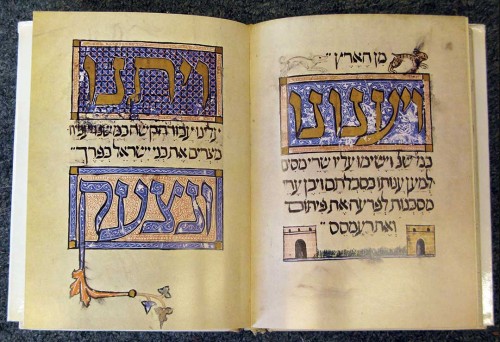 מן הארץ
ויענונו
כמה שנ' וישימו עליו שרי מסים
למען ענותו בסבלתם ויבן ערי
מסכנות לפרעה את פיתום
ואת רעמסס
ויתנו
עלינו עבודה קשה כמה שנ' ויעבידו
מצרים את בני ישראל בפרך
ונצעק